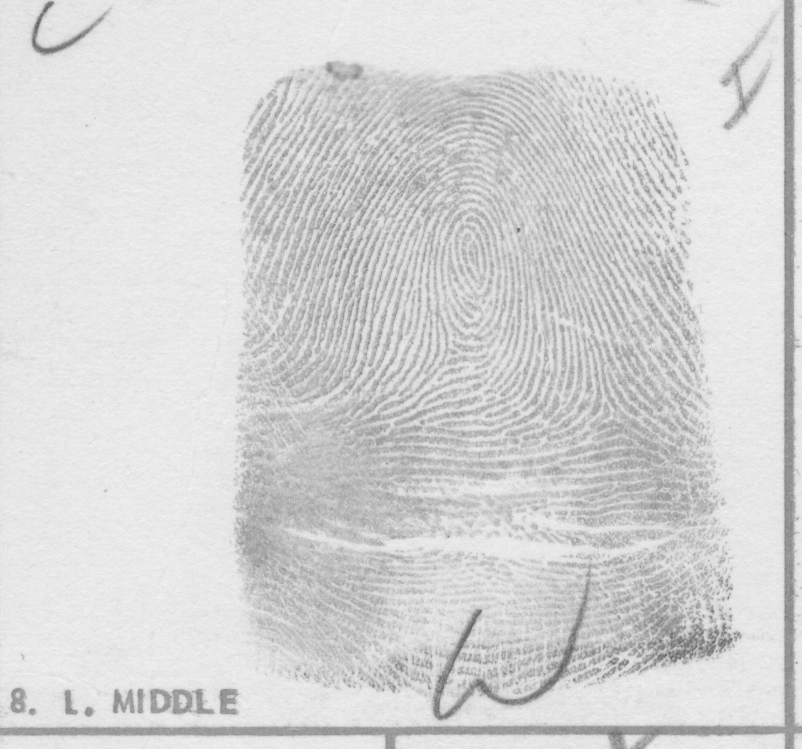 C
I
8. L. MIDDLE
W